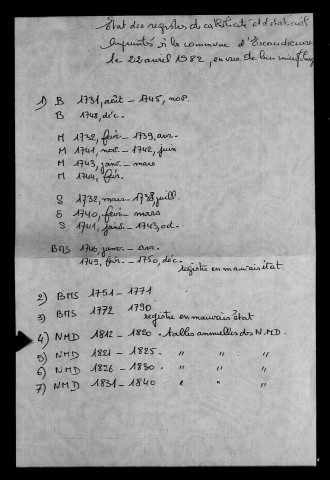 Etat des registres de catholicité et d'état civil
empruntés à la commune d'Escaudoeuvres
le 22 avril 1982, en vue de leur microfilmage
1) B 1731, août - 1745, nov.
B 1748, déc.
M 1732, févr - 1739, avr.
M 1741, nov. - 1742, juin
M 1743, janv - mars
M 1744, févr.
S 1732, mars - 1738, juill.
S 1740, févr - mars
S 1741, janv - 1743, oct.
BMS 1746, janv - avr.
BMS 1749, févr. - 1750, déc.
registre en mauvais état.
2) BMS 1751 - 1771
3) BMS 1772 1790
registre en mauvais état
4) NMD 1812 - 1820 + tables annuelles des N.M.D.
5) NMD 1821 - 1825. " " "
6) NMD 1826 - 1830. " " "
7) NMD 1831 - 1840 " " "